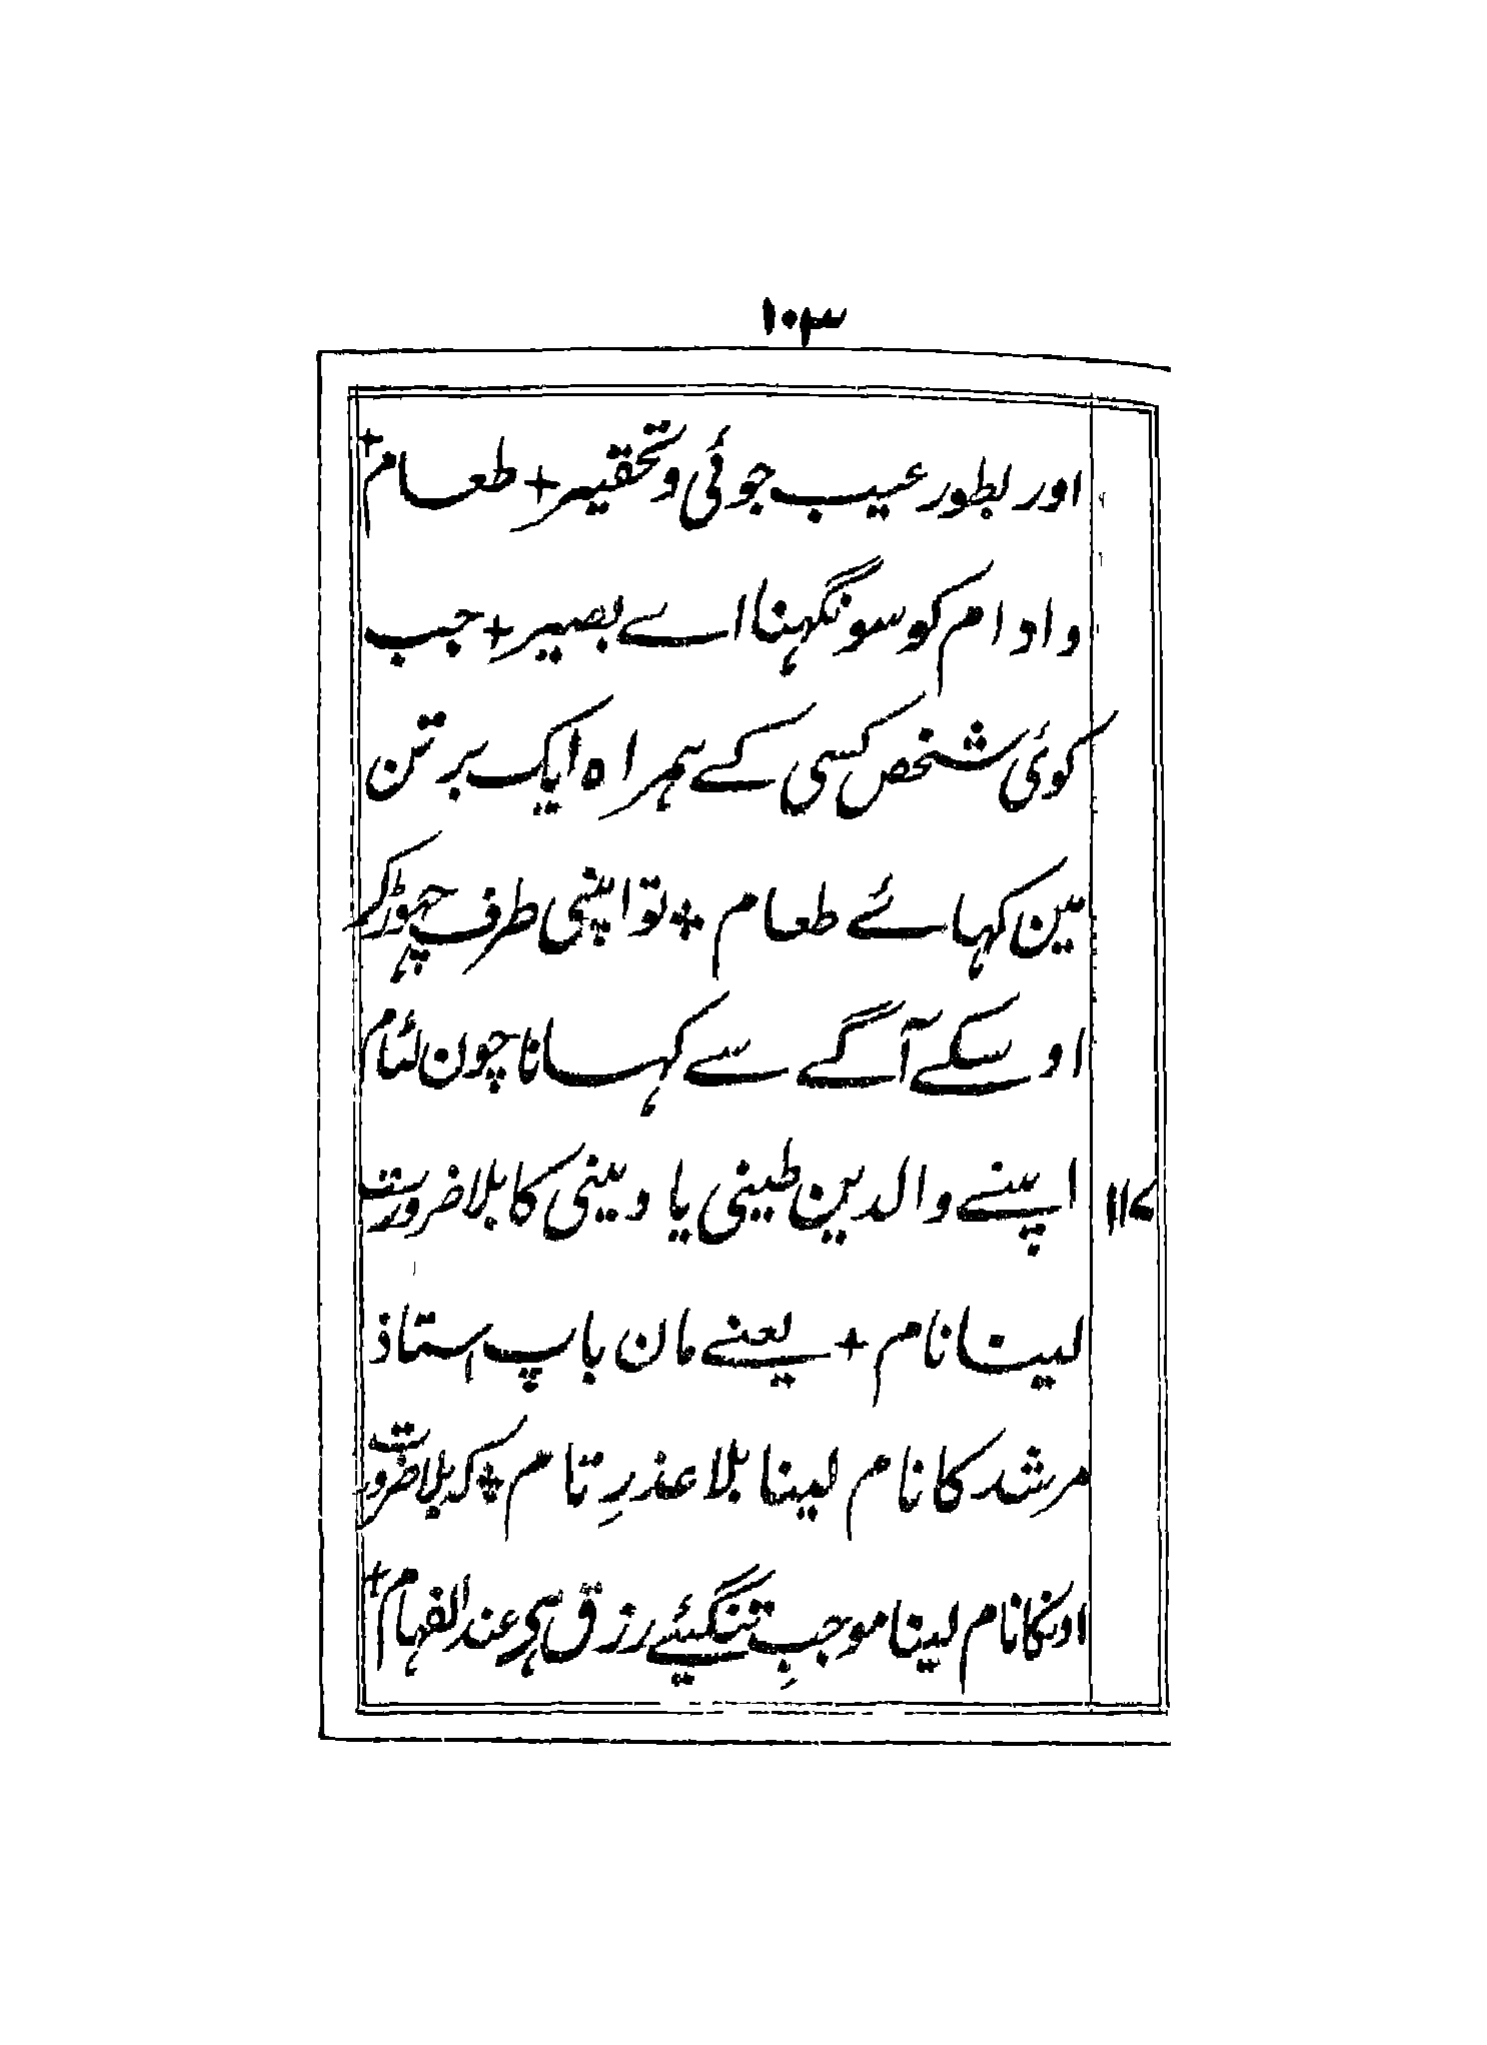 ۱۰۳
اور بطور عیب جوئی و تحقیر + طعام +
و ادام کو سونگہنا اے بصیر + جب
کوئی شخص کسی کے ہمراہ ایک برتن
مین کہائے طعام + تو اپنی طرف چہوڑکر
اوسکے آگے سے کہانا چون لئام
۱۱۷ اپنے والدین طینی یا دینی کا بلا ضرورت
لینا نام + یعنے مان باپ استاذ
مرشد کا نام لینا بلا عذرِ تام + کہ بلا ضرورت
اونکا نام لینا موجبِ تنگیئے رزق ہی عند الفہام +